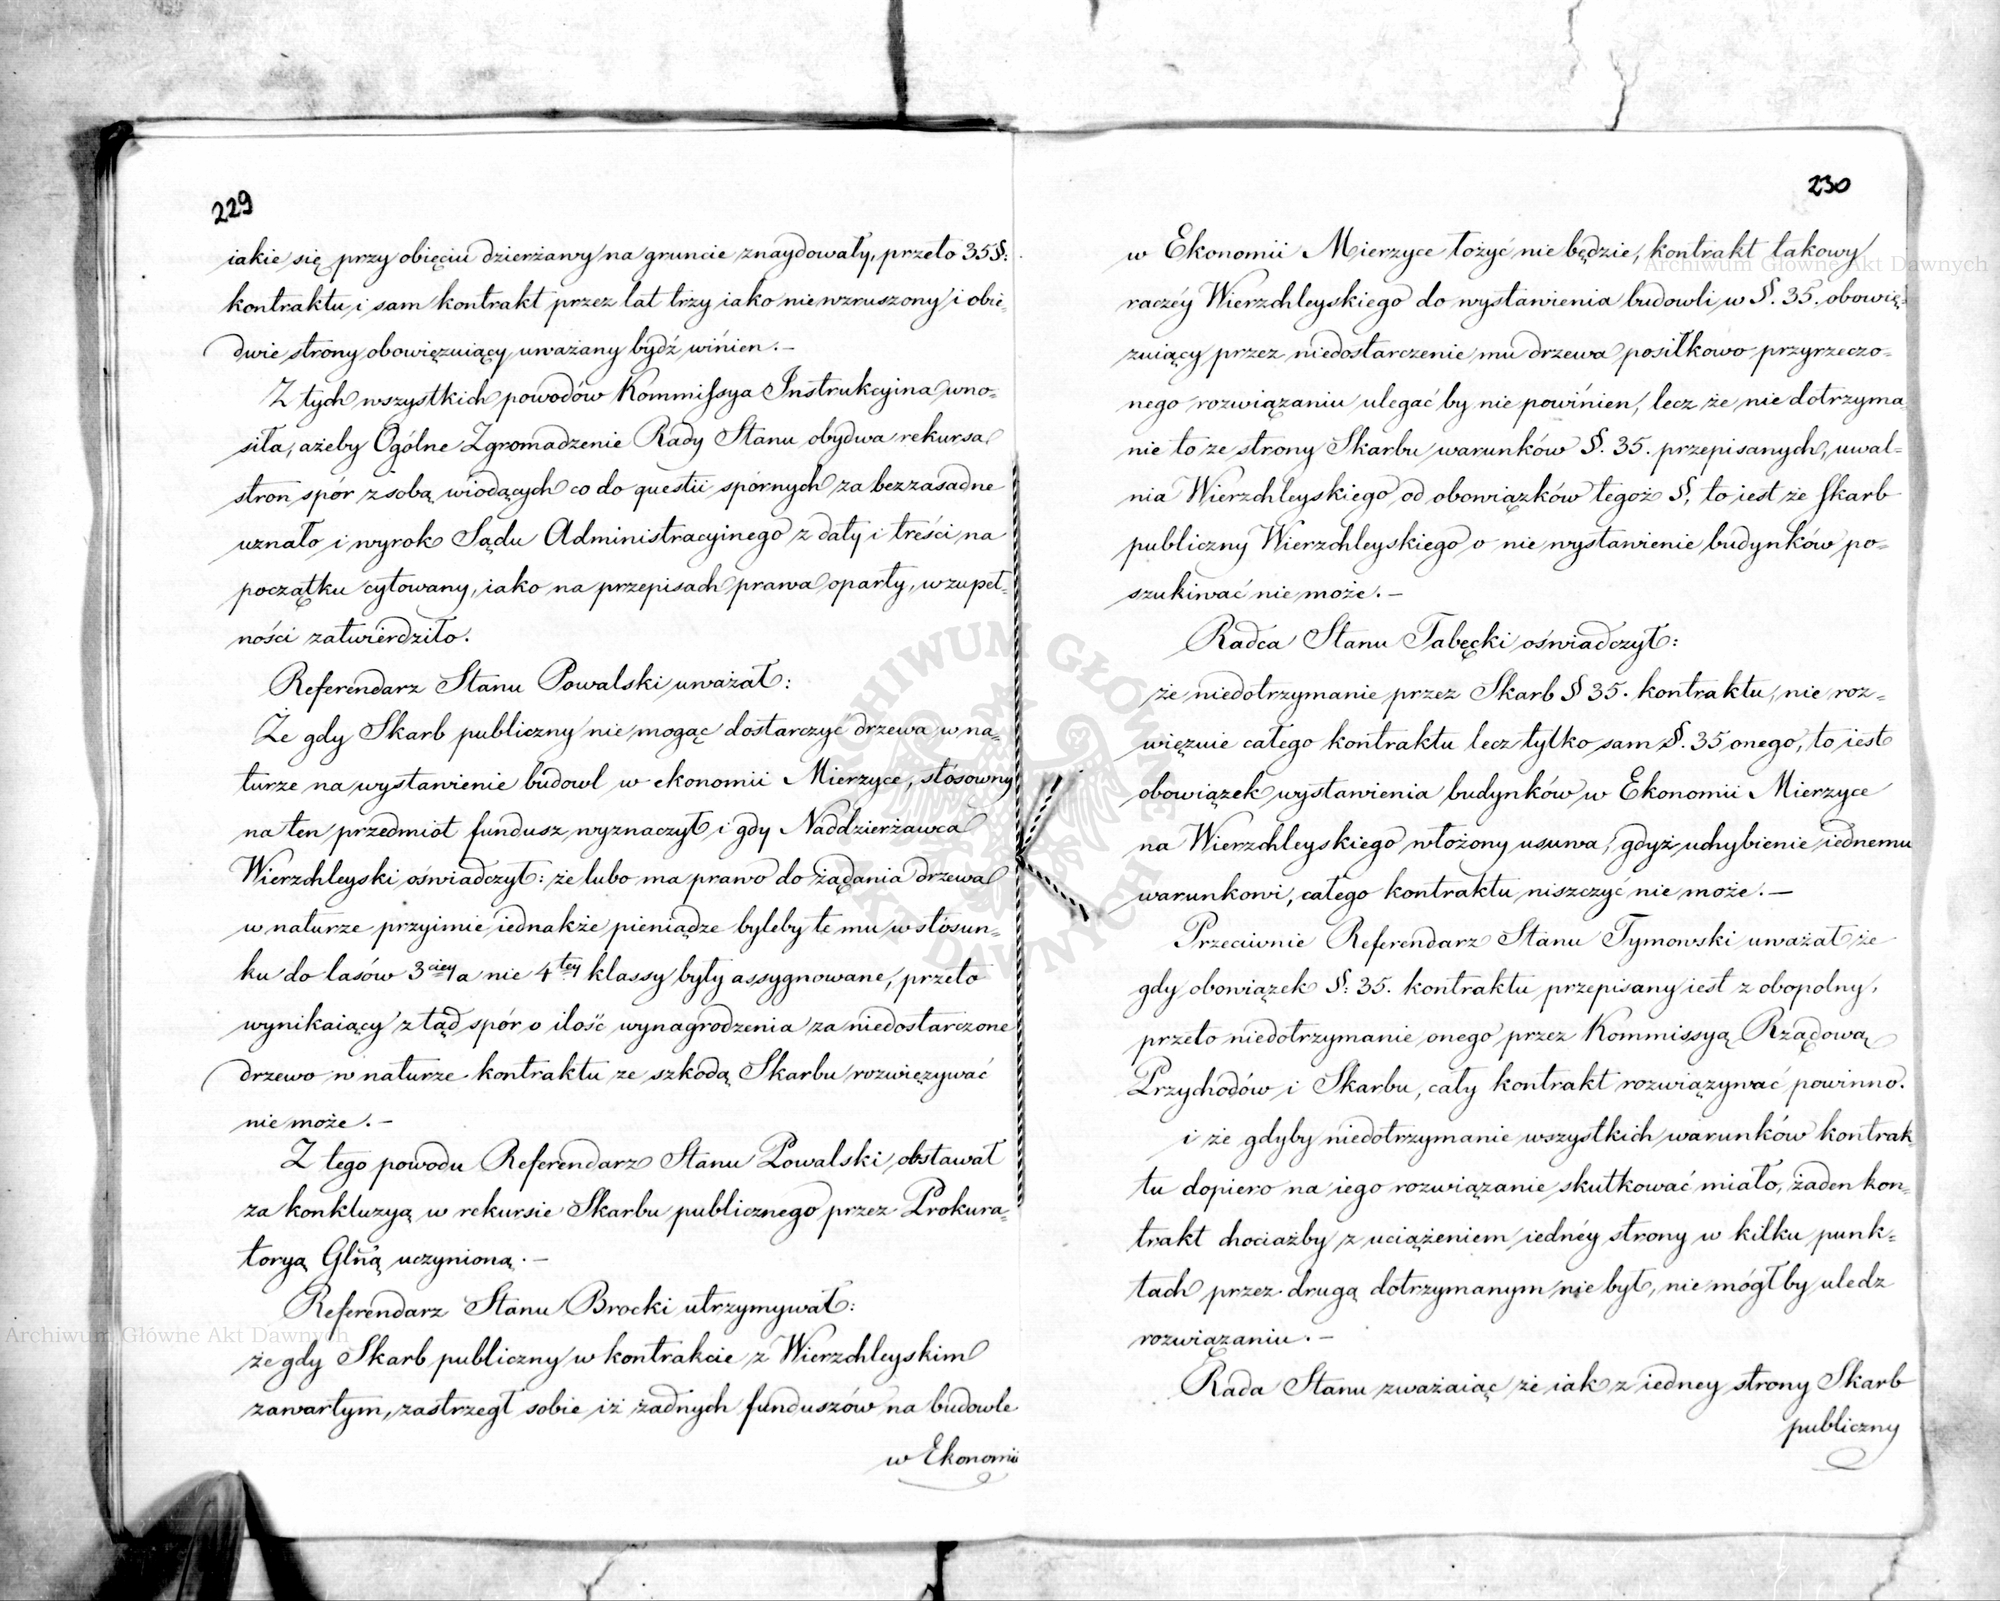 229
iakie się przy obięciu dzierżawy na gruncie znaydowały, przeto 35 §:
kontraktu i sam kontrakt przez lat trzy iako niewzruszony i obie-
dwie strony obowięzuiący uważany bydź winien. —
Z tych wszystkich powodów Kommissya Instrukcyina wno-
siła, ażeby Ogólne Zgromadzenie Rady Stanu obydwa rekursa
stron spór z sobą wiodących co do questii spornych za bezzasadne
uznało i wyrok Sądu Administracyinego z daty i treści na
początku cytowany, iako na przepisach prawa oparty, w zupeł-
ności zatwierdziło.
Referendarz Stanu Powalski uważał:
Że gdy Skarb publiczny nie mogąc dostarczyć drzewa w na-
turze na wystawienie budowl w ekonomii Mierzyce, stósowny
na ten przedmiot fundusz wyznaczył i gdy Naddzierżawca
Wierzchleyski oświadczył: że lubo ma prawo do żądania drzewa
w naturze przyimie iednakże pieniądze byleby te mu w stósun-
ku do lasów 3ciey a nie 4tey klassy były assygnowane, przeto
wynikaiący z tąd spór o ilość wynagrodzenia za niedostarczone
drzewo w naturze kontraktu ze szkodą Skarbu rozwięzywać
nie może. —
Z tego powodu Referendarz Stanu Powalski obstawał
za konkluzyą w rekursie Skarbu publicznego przez Prokura-
toryą Glną uczynioną. —
Referendarz Stanu Brocki utrzymywał:
że gdy Skarb publiczny w kontrakcie z Wierzchleyskim
zawartym, zastrzegł sobie iż żadnych funduszów na budowle
w Ekonomii
230
w Ekonomii Mierzyce łożyć nie będzie, kontrakt takowy
raczéy Wierzchleyskiego do wystawienia budowli w §. 35. obowię-
zuiący przez niedostarczenie mu drzewa posiłkowo przyrzeczo-
nego rozwiązaniu ulegać by nie powinien, lecz że nie dotrzyma-
nie to ze strony Skarbu warunków §. 35. przepisanych, uwal-
nia Wierzchleyskiego od obowiązków tegoż §, to iest że skarb
publiczny Wierzchleyskiego o nie wystawienie budynków po-
szukiwać nie może. —
Radca Stanu Tabęcki oświadczył:
że niedotrzymanie przez Skarb § 35. kontraktu, nie roz-
więzuie całego kontraktu lecz tylko sam §. 35 onego, to iest
obowiązek wystawienia budynków w Ekonomii Mierzyce
na Wierzchleyskiego włożony usuwa, gdyż uchybienie iednemu
warunkowi, całego kontraktu niszczyć nie może. —
Przeciwnie Referendarz Stanu Tymowski uważał że
gdy obowiązek §: 35. kontraktu przepisany iest z obopolny,
przeto niedotrzymanie onego przez Kommissyą Rządową
Przychodów i Skarbu, cały kontrakt rozwiązywać powinno.
i że gdyby niedotrzymanie wszystkich warunków kontrak-
tu dopiero na iego rozwiązanie skutkować miało, żaden kon-
trakt chociażby z uciążeniem iednéy strony w kilku punk-
tach przez drugą dotrzymanym nie był, nie mógłby uledz
rozwiązaniu. —
Rada Stanu zważaiąc że iak z iedney strony Skarb
publiczny
Archiwum Główne Akt Dawnych
Archiwum Główne Akt Dawnych
ARCHIWUM GŁÓWNE AKT DAWNYCH